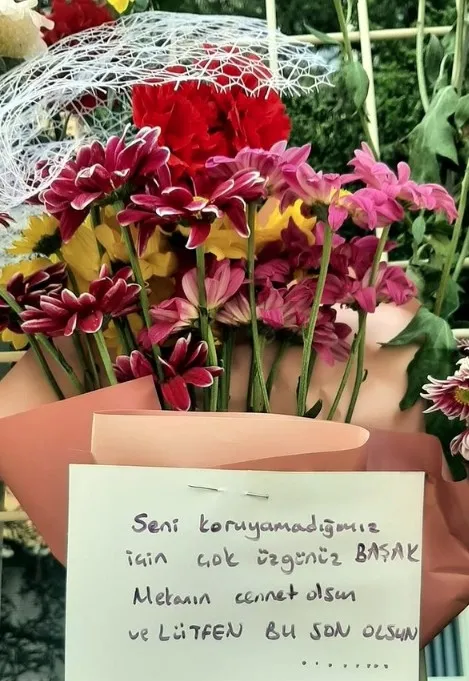 Seni koruyamadığımız
için çok üzgünüz BAŞAK
Mekanın cennet olsun
ve LÜTFEN BU SON OLSUN
........